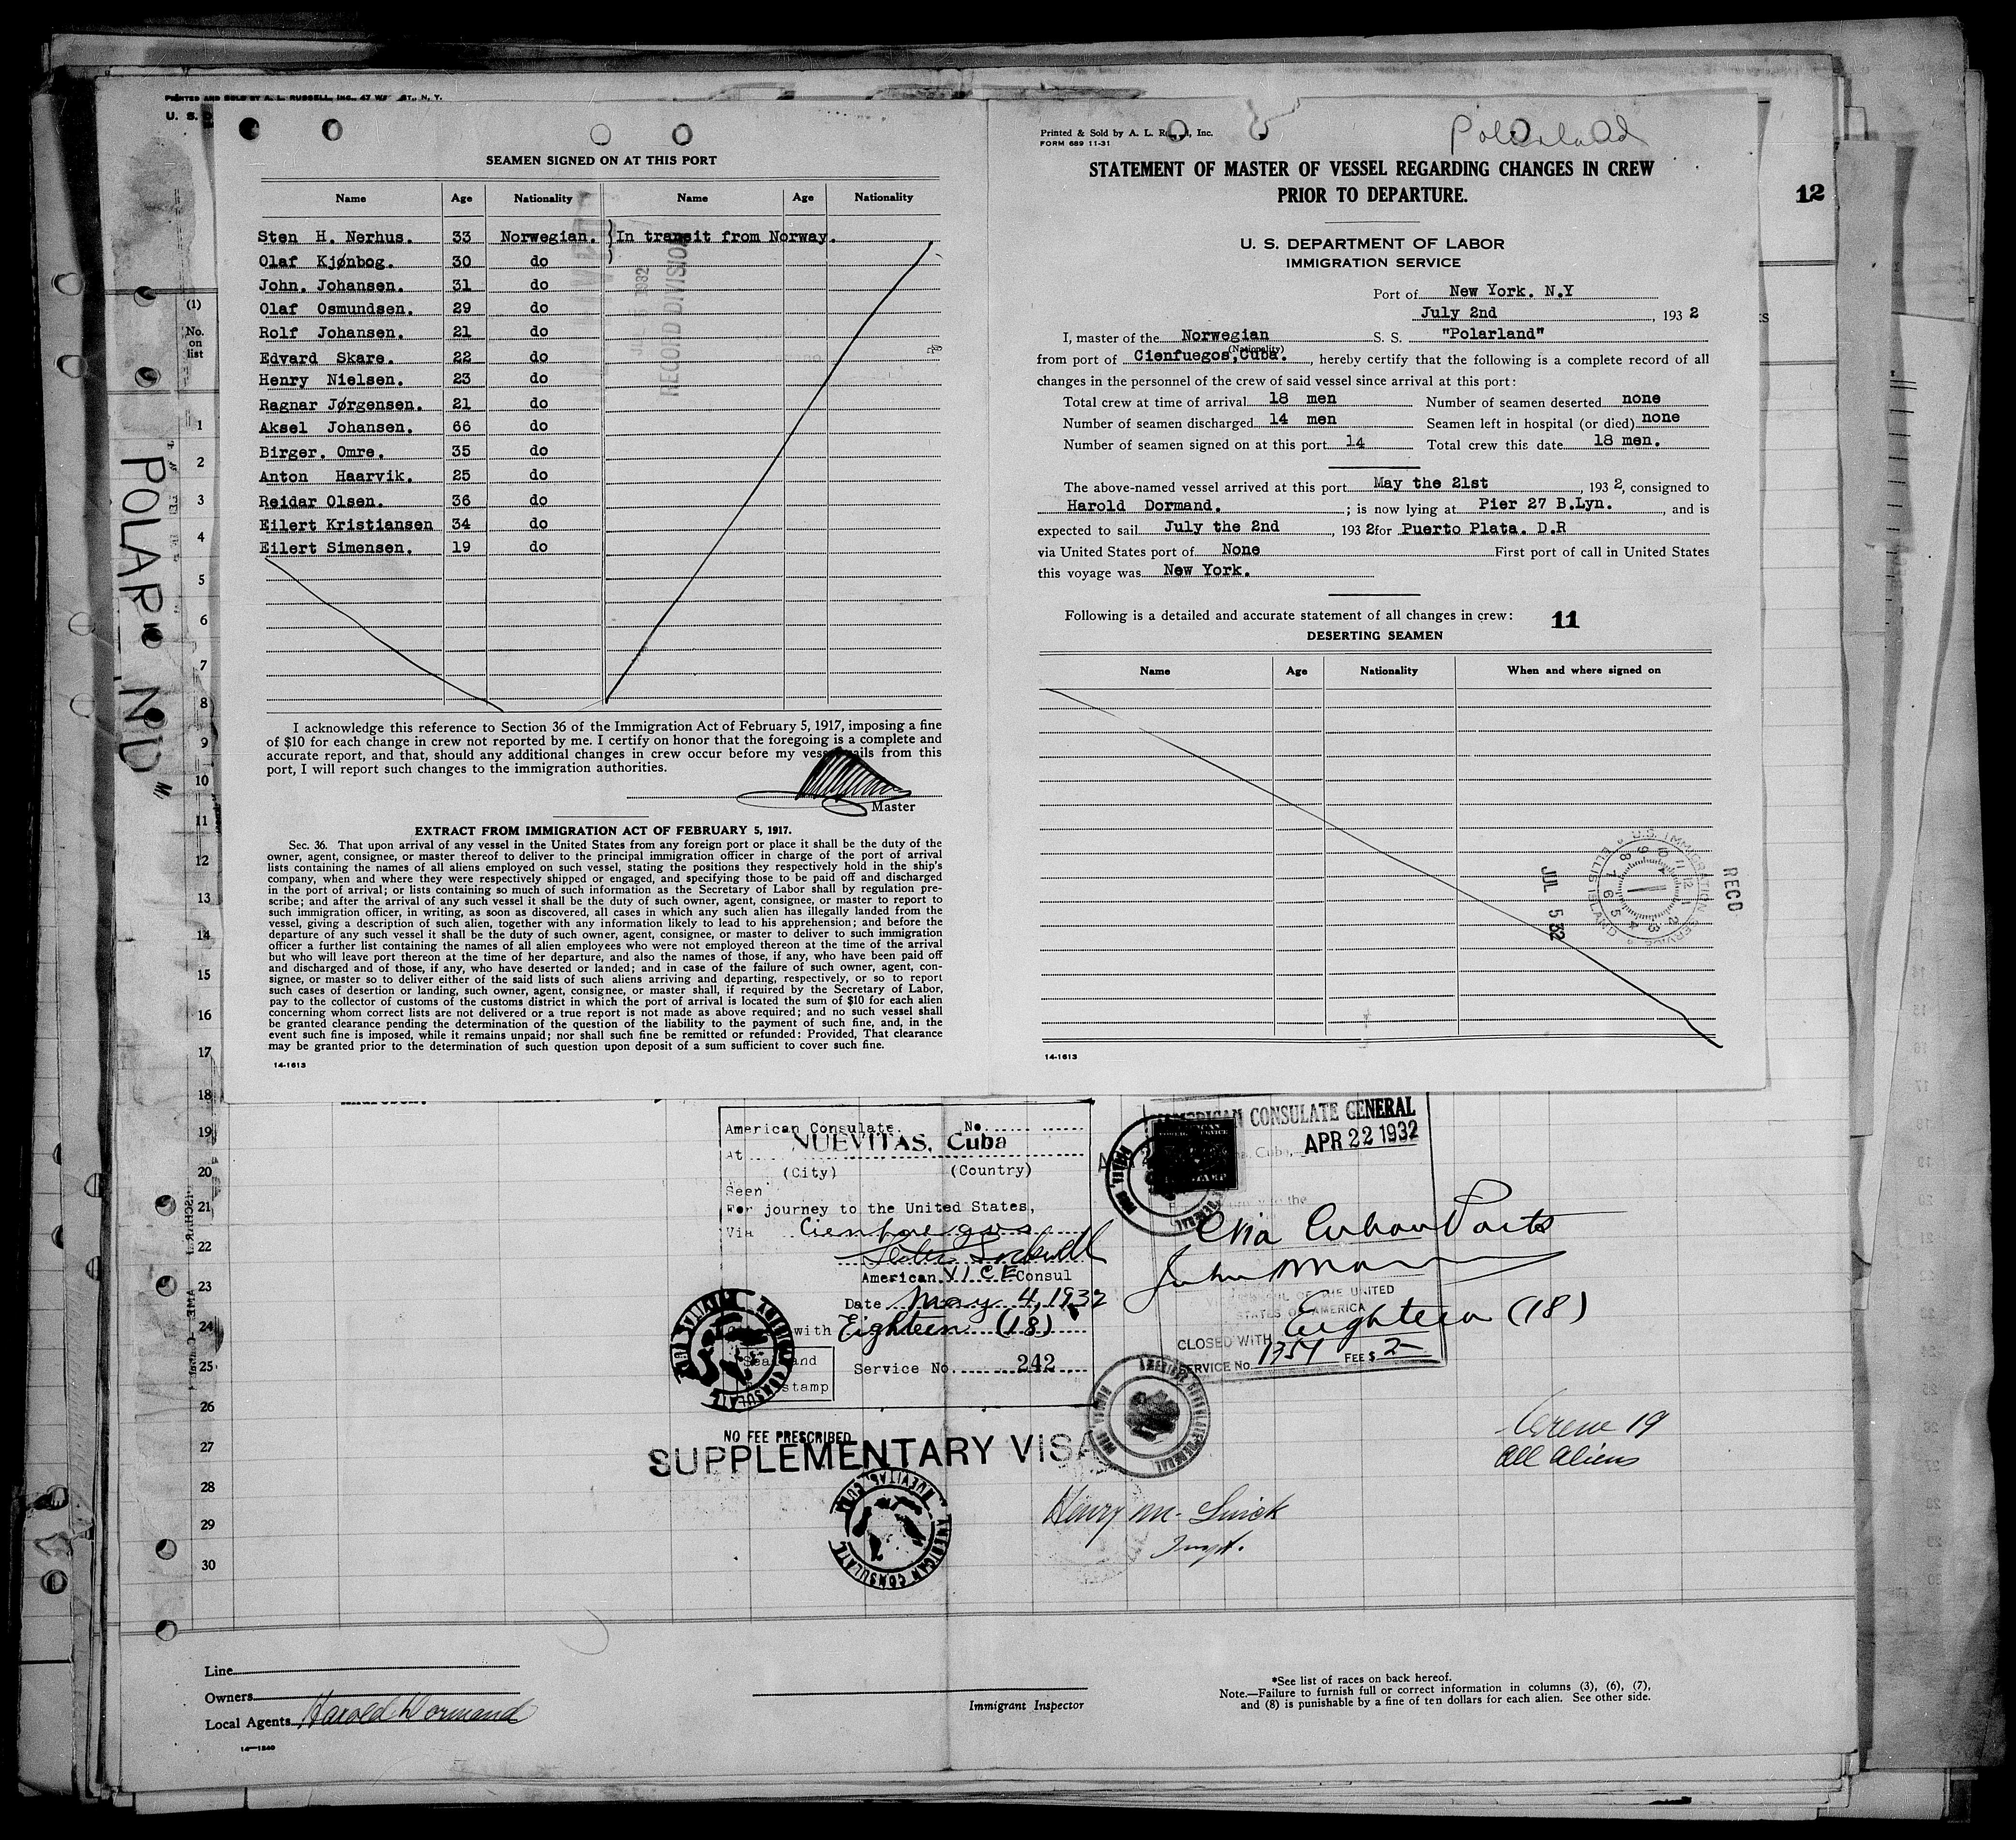 PRINTED AND SOLD BY A. L. RUSSELL, INC., 47 ST., N. Y.
U. S.
SEAMEN SIGNED ON AT THIS PORT
Name Age Nationality Name Age Nationality
Sten H. Nerhus. 33 Norwegian. In transit from Norway.
Olaf Kjønbog. 30 do
John. Johansen. 31 do
Olaf Osmundsen. 29 do
Rolf Johansen. 21 do
Edvard Skare. 22 do
Henry Nielsen. 23 do
Ragnar Jørgensen. 21 do
Aksel Johansen. 66 do
Birger. Omre. 35 do
Anton Haarvik. 25 do
Reidar Olsen. 36 do
Eilert Kristiansen 34 do
Eilert Simensen. 19 do
JUL 5 1932
RECORD DIVISION
I acknowledge this reference to Section 36 of the Immigration Act of February 5, 1917, imposing a fine
of $10 for each change in crew not reported by me. I certify on honor that the foregoing is a complete and
accurate report, and that, should any additional changes in crew occur before my vessel sails from this
port, I will report such changes to the immigration authorities.
Master
EXTRACT FROM IMMIGRATION ACT OF FEBRUARY 5, 1917.
Sec. 36. That upon arrival of any vessel in the United States from any foreign port or place it shall be the duty of the
owner, agent, consignee, or master thereof to deliver to the principal immigration officer in charge of the port of arrival
lists containing the names of all aliens employed on such vessel, stating the positions they respectively hold in the ship's
company, when and where they were respectively shipped or engaged, and specifying those to be paid off and discharged
in the port of arrival; or lists containing so much of such information as the Secretary of Labor shall by regulation pre-
scribe; and after the arrival of any such vessel it shall be the duty of such owner, agent, consignee, or master to report to
such immigration officer, in writing, as soon as discovered, all cases in which any such alien has illegally landed from the
vessel, giving a description of such alien, together with any information likely to lead to his apprehension; and before the
departure of any such vessel it shall be the duty of such owner, agent, consignee, or master to deliver to such immigration
officer a further list containing the names of all alien employees who were not employed thereon at the time of the arrival
but who will leave port thereon at the time of her departure, and also the names of those, if any, who have been paid off
and discharged and of those, if any, who have deserted or landed; and in case of the failure of such owner, agent, con-
signee, or master so to deliver either of the said lists of such aliens arriving and departing, respectively, or so to report
such cases of desertion or landing, such owner, agent, consignee, or master shall, if required by the Secretary of Labor,
pay to the collector of customs of the customs district in which the port of arrival is located the sum of $10 for each alien
concerning whom correct lists are not delivered or a true report is not made as above required; and no such vessel shall
be granted clearance pending the determination of the question of the liability to the payment of such fine, and, in the
event such fine is imposed, while it remains unpaid; nor shall such fine be remitted or refunded: Provided, That clearance
may be granted prior to the determination of such question upon deposit of a sum sufficient to cover such fine.
14-1613
Polarland
Printed & Sold by A. L. Russell, Inc.
FORM 689 11-31
STATEMENT OF MASTER OF VESSEL REGARDING CHANGES IN CREW
PRIOR TO DEPARTURE.
12
U. S. DEPARTMENT OF LABOR
IMMIGRATION SERVICE
Port of New York. N.Y
July 2nd, 1932
I, master of the Norwegian S. S. "Polarland"
(Nationality)
from port of Cienfuegos, Cuba., hereby certify that the following is a complete record of all
changes in the personnel of the crew of said vessel since arrival at this port:
Total crew at time of arrival 18 men Number of seamen deserted none
Number of seamen discharged 14 men Seamen left in hospital (or died) none
Number of seamen signed on at this port 14 Total crew this date 18 men.
The above-named vessel arrived at this port May the 21st, 1932, consigned to
Harold Dormand. ; is now lying at Pier 27 B.Lyn., and is
expected to sail July the 2nd, 1932 for Puerto Plata. D.R
via United States port of None First port of call in United States
this voyage was New York.
Following is a detailed and accurate statement of all changes in crew: 11
DESERTING SEAMEN
Name Age Nationality When and where signed on
U.S. IMMIGRATION SERVICE ELLIS ISLAND
RECD
JUL 5 32
14-1613
(1)
No. on list
1
2
3
4
5
6
7
8
9
10
11
12
13
14
15
16
17
18
19
20
21
22
23
24
25
26
27
28
29
30
POLARLAND"
American Consulate. No.
At NUEVITAS, Cuba
(City) (Country)
Seen
For journey to the United States,
Via Cienfuegos
American VICE Consul
Date May 4, 1932
with Eighteen (18)
Seal and
stamp
Service No. 242
NO FEE PRESCRIBED
SUPPLEMENTARY VISA
AMERICAN CONSULATE NUEVITAS, CUBA
AMERICAN CONSULATE NUEVITAS CUBA
AMERICAN CONSULATE GENERAL
APR 22 1932
Via Cuban Ports
VICE CONSUL OF THE UNITED
STATES OF AMERICA
Eighteen (18)
CLOSED WITH
SERVICE No. 1354 FEE $ 2-
Crew 19
All Aliens
Henry M.
Inspt.
Line
Owners
Local Agents Harold Dormand
14—1240
Immigrant Inspector
*See list of races on back hereof.
Note.—Failure to furnish full or correct information in columns (3), (6), (7),
and (8) is punishable by a fine of ten dollars for each alien. See other side.